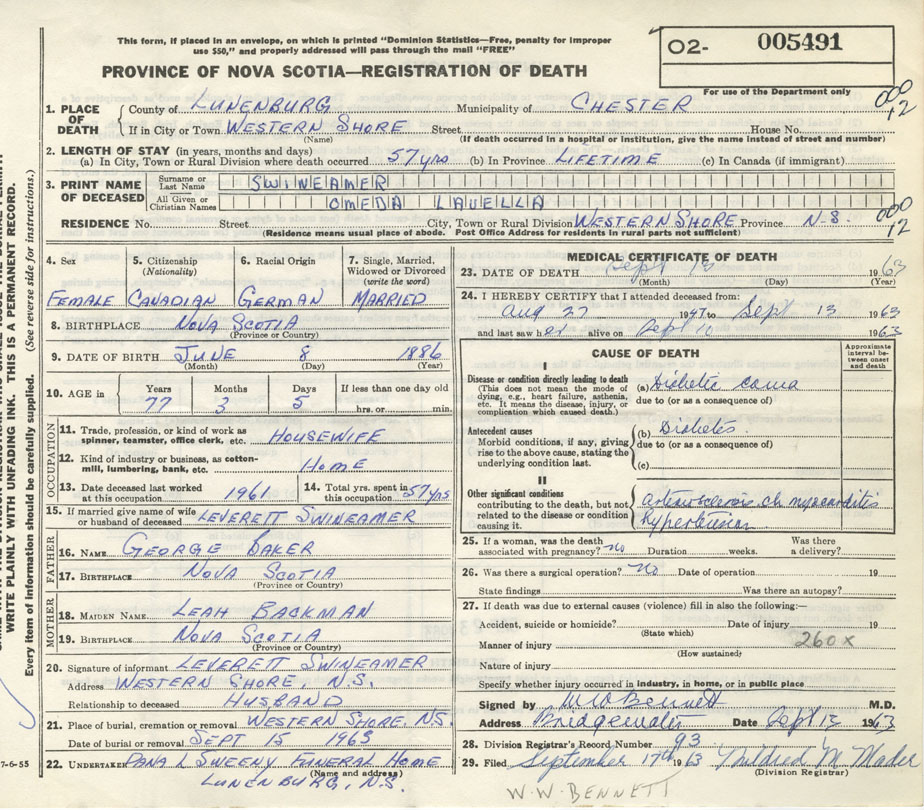 This form, if placed in an envelope, on which is printed "Dominion Statistics—Free, penalty for improper
use $50," and properly addressed will pass through the mail "FREE"
PROVINCE OF NOVA SCOTIA—REGISTRATION OF DEATH
O2- 005491
For use of the Department only
000
12
1. PLACE OF DEATH
County of LUNENBURG Municipality of CHESTER
If in City or Town WESTERN SHORE Street House No.
(Name) (If death occurred in a hospital or institution, give the name instead of street and number)
2. LENGTH OF STAY (in years, months and days)
(a) In City, Town or Rural Division where death occurred 57 yrs (b) In Province LIFETIME (c) In Canada (if immigrant)
3. PRINT NAME OF DECEASED
Surname or Last Name SWINEAMER
All Given or Christian Names OMEDA LAVELLA
RESIDENCE No. Street City, Town or Rural Division WESTERN SHORE Province N.S.
000
12
(Residence means usual place of abode. Post Office Address for residents in rural parts not sufficient)
WRITE PLAINLY WITH UNFADING INK. THIS IS A PERMANENT RECORD.
Every item of information should be carefully supplied. (See reverse side for instructions.)
4. Sex 5. Citizenship (Nationality) 6. Racial Origin 7. Single, Married, Widowed or Divorced (write the word)
FEMALE CANADIAN GERMAN MARRIED
8. BIRTHPLACE NOVA SCOTIA
(Province or Country)
9. DATE OF BIRTH JUNE 8 1886
(Month) (Day) (Year)
10. AGE in Years Months Days If less than one day old
77 3 5 hrs. or min.
OCCUPATION
11. Trade, profession, or kind of work as spinner, teamster, office clerk, etc. HOUSEWIFE
12. Kind of industry or business, as cotton-mill, lumbering, bank, etc. HOME
13. Date deceased last worked at this occupation 1961 14. Total yrs. spent in this occupation 57 yrs
15. If married give name of wife or husband of deceased LEVERETT SWINEAMER
FATHER
16. NAME GEORGE BAKER
17. BIRTHPLACE NOVA SCOTIA
(Province or Country)
MOTHER
18. MAIDEN NAME LEAH BACKMAN
19. BIRTHPLACE NOVA SCOTIA
(Province or Country)
20. Signature of informant LEVERETT SWINEAMER
Address WESTERN SHORE N.S.
Relationship to deceased HUSBAND
21. Place of burial, cremation or removal WESTERN SHORE, NS.
Date of burial or removal SEPT 15 1963
22. UNDERTAKER DANA L SWEENY FUNERAL HOME
(Name and address)
LUNENBURG, N.S.
7-6-55
MEDICAL CERTIFICATE OF DEATH
23. DATE OF DEATH Sept 1963
(Month) (Day) (Year)
24. I HEREBY CERTIFY that I attended deceased from:
Aug 27 1947 to Sept 13 1963
and last saw her alive on Sept 10 1963
CAUSE OF DEATH
Approximate interval between onset and death
I
Disease or condition directly leading to death
(This does not mean the mode of dying, e.g., heart failure, asthenia, etc. It means the disease, injury, or complication which caused death.)
(a) Diabetic coma
due to (or as a consequence of)
Antecedent causes
Morbid conditions, if any, giving rise to the above cause, stating the underlying condition last.
(b) Diabetes
due to (or as a consequence of)
(c)
II
Other significant conditions
contributing to the death, but not related to the disease or condition causing it.
arteriosclerosis ch myocarditis
hypertension
25. If a woman, was the death associated with pregnancy? no Duration weeks. Was there a delivery?
26. Was there a surgical operation? no Date of operation 19
State findings Was there an autopsy?
27. If death was due to external causes (violence) fill in also the following:—
Accident, suicide or homicide? Date of injury 19
(State which)
260x
Manner of injury
(How sustained)
Nature of injury
Specify whether injury occurred in industry, in home, or in public place
Signed by WW Bennett M.D.
Address Bridgewater Date Sept 13 1963
28. Division Registrar's Record Number 93
29. Filed September 17th 1963 Mildred M Mader
(Division Registrar)
W.W. BENNETT